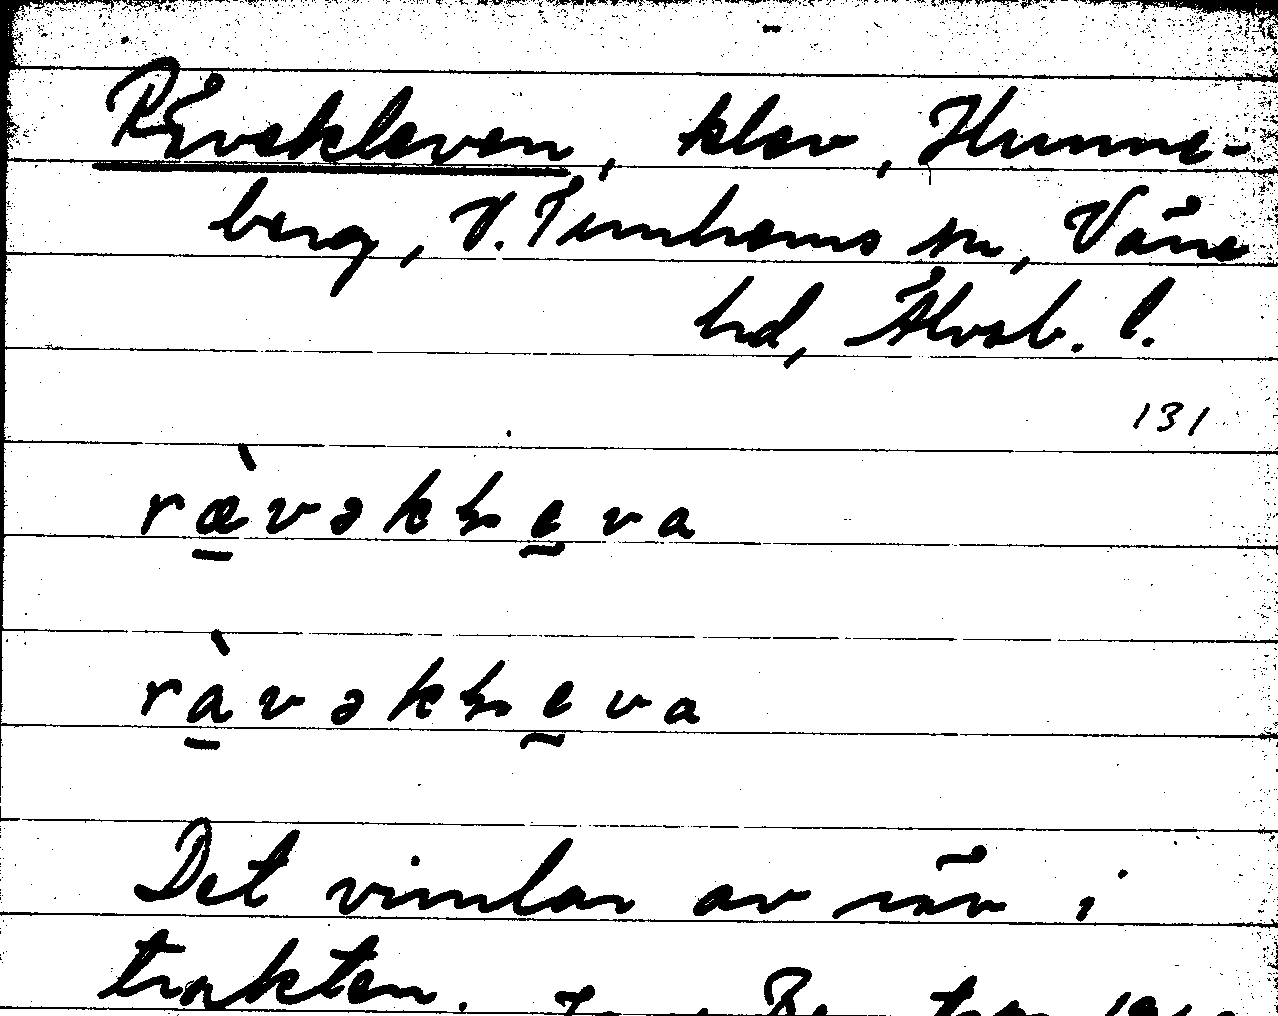 Rävekleven, klev, Hunne-
berg, V. Tunhems sn, Väne
hd, Älvsb. l.
131
rævəkḷeva
ravəkḷeva
Det vimlar av räv i
trakten.